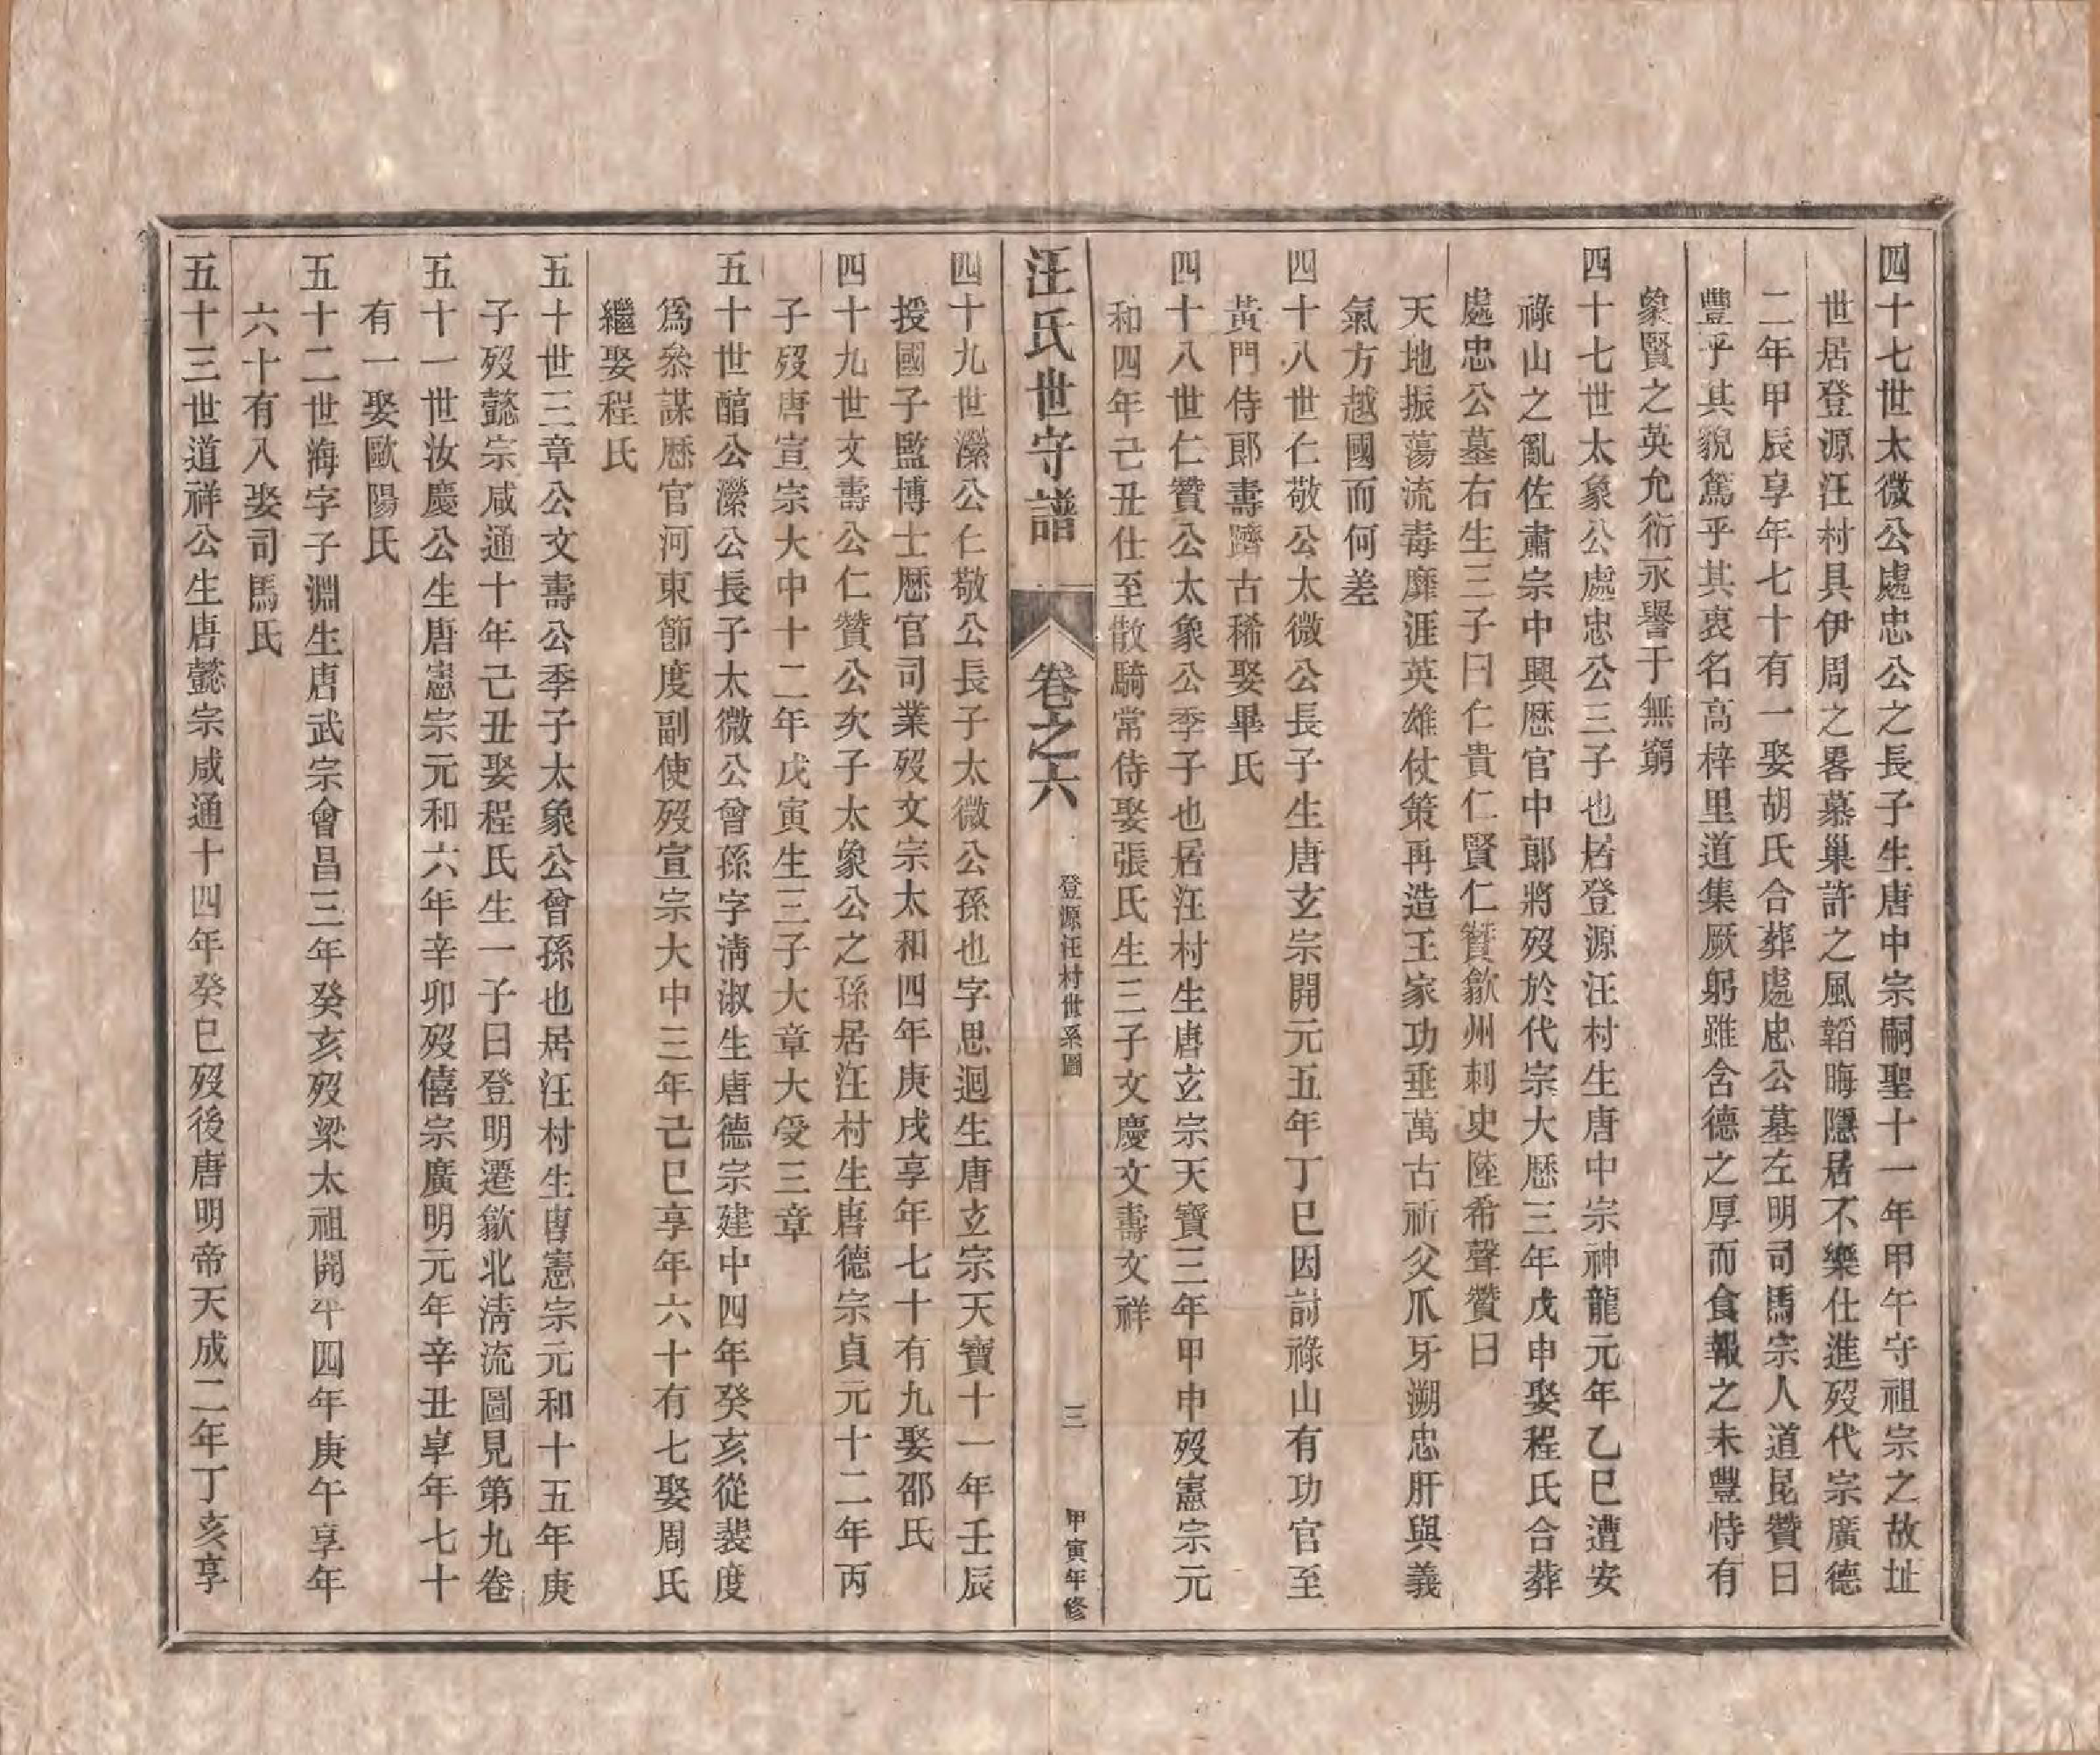 四十七世太微公處忠公之長子生唐中宗嗣聖十一年甲午守祖宗之故址
世居登源汪村具伊周之畧慕巢許之風韜晦隱居不樂仕進歿代宗廣德
二年甲辰享年七十有一娶胡氏合葬處忠公墓左明司馬宗人道昆贊曰
豐乎其貌篤乎其衷名高梓里道集厥躬雖含德之厚而食報之未豐恃有
象賢之英允衍永譽于無窮
四十七世太象公處忠公三子也居登源汪村生唐中宗神龍元年乙巳遭安
祿山之亂佐肅宗中興歷官中郎將歿於代宗大歷三年戊申娶程氏合葬
處忠公墓右生三子曰仁貴仁賢仁贊歙州刺史陸希聲贊曰
天地振蕩流毒靡涯英雄仗策再造王家功垂萬古祈父爪牙溯忠肝與義
氣方越國而何差
四十八世仁敬公太微公長子生唐玄宗開元五年丁巳因討祿山有功官至
黃門侍郎壽躋古稀娶畢氏
四十八世仁贊公太象公季子也居汪村生唐玄宗天寶三年甲申歿憲宗元
和四年己丑仕至散騎常侍娶張氏生三子文慶文壽文祥
汪氏世守譜
卷之六
登源汪村世系圖
三
甲寅年修
四十九世濴公仁敬公長子太微公孫也字思迴生唐玄宗天寶十一年壬辰
授國子監博士歷官司業歿文宗太和四年庚戌享年七十有九娶邵氏
四十九世文壽公仁贊公次子太象公之孫居汪村生唐德宗貞元十二年丙
子歿唐宣宗大中十二年戊寅生三子大章大受三章
五十世醕公濴公長子太微公曾孫字清淑生唐德宗建中四年癸亥從裴度
爲叅謀歷官河東節度副使歿宣宗大中三年己巳享年六十有七娶周氏
繼娶程氏
五十世三章公文壽公季子太象公曾孫也居汪村生唐憲宗元和十五年庚
子歿懿宗咸通十年己丑娶程氏生一子曰登明遷歙北清流圖見第九卷
五十一世汝慶公生唐憲宗元和六年辛卯歿僖宗廣明元年辛丑享年七十
有一娶歐陽氏
五十二世海字子淵生唐武宗會昌三年癸亥歿梁太祖開平四年庚午享年
六十有八娶司馬氏
五十三世道祥公生唐懿宗咸通十四年癸巳歿後唐明帝天成二年丁亥享